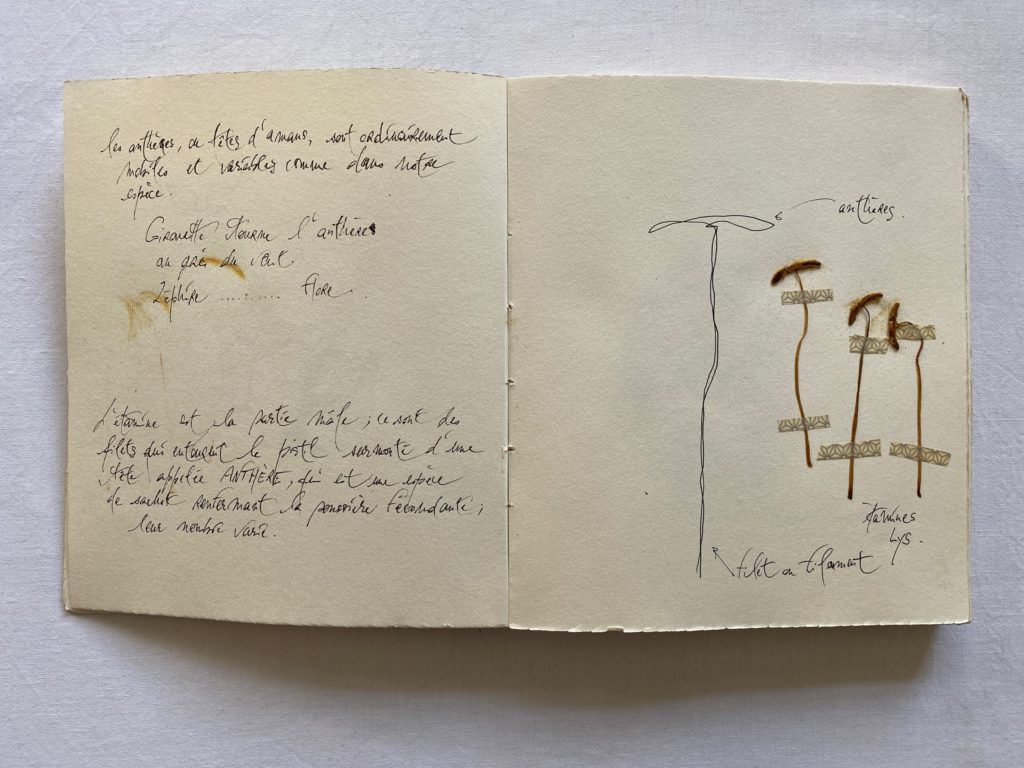 les anthères, ou têtes d'amans, sont ordinairement
mobiles et variables comme dans notre
espèce.
Girouette tourne l'anthère
au grès du vent
Zéphire .......... Flore.
L'étamine est la partie mâle ; ce sont des
filets qui entourent le pistil surmonté d'une
tête appelée ANTHÈRE, qui est une espèce
de sachet renfermant la poussière fécondante,
leur nombre varie.
anthères.
étamines
Lys.
filet ou filament